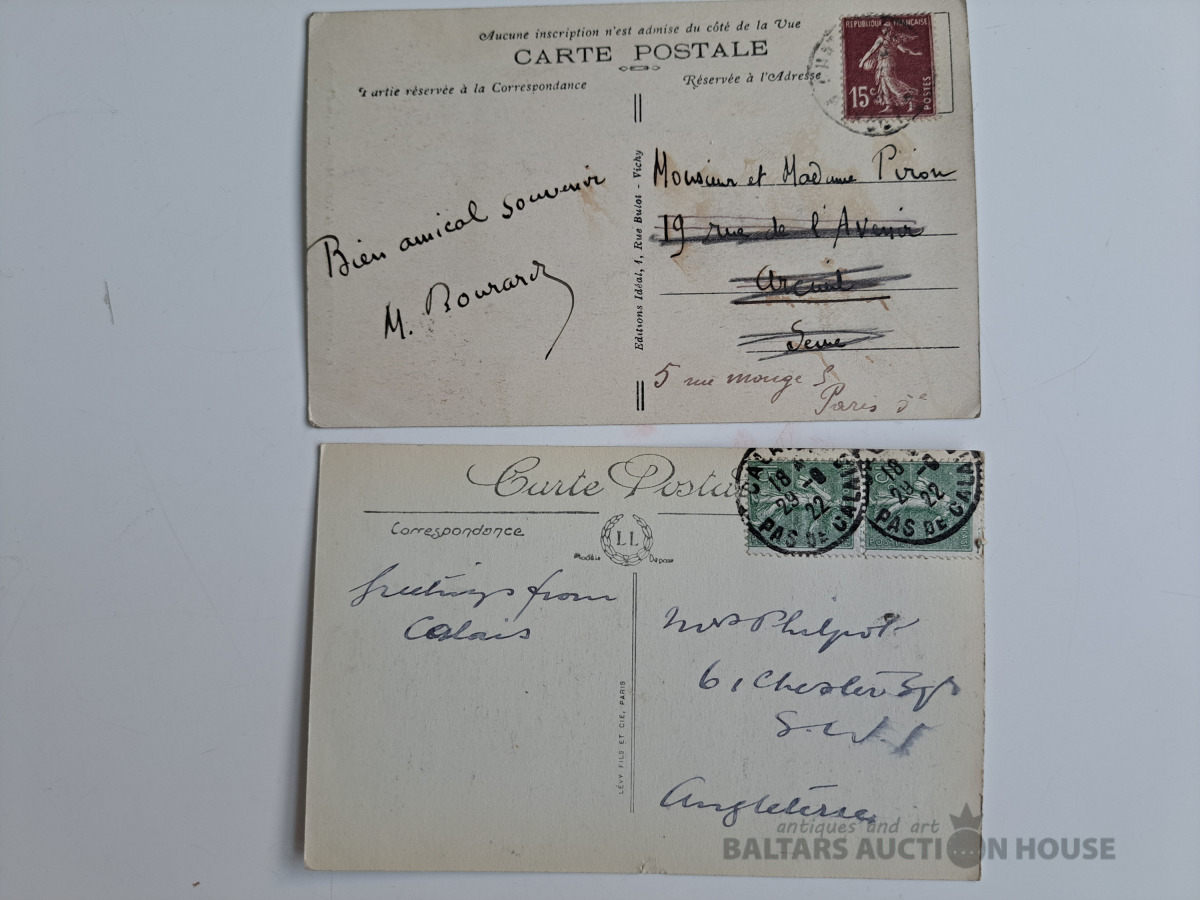 Aucune inscription n'est admise du côté de la Vue
CARTE POSTALE
Partie réservée à la Correspondance
Réservée à l'Adresse
REPUBLIQUE FRANÇAISE
15c
POSTES
Bien amical souvenir
M. Bourard
Editions Idéal, 1, Rue Bulot - Vichy
Monsieur et Madame Piron
19 rue de l'Avenir
Arcueil
Seine
5 rue monge 5
Paris 5e
Carte Posta
Correspondance
LL
Modèle Déposé
CALAIS
18
29 -8
22
PAS DE CALAIS
18
29 -8
22
PAS DE CALA
Greetings from
Calais
LÉVY FILS ET CIE, PARIS
Mrs Philpott
61 Chester Sqr
S.W.1
Angleterre
antiques and art
BALTARS AUCTION HOUSE